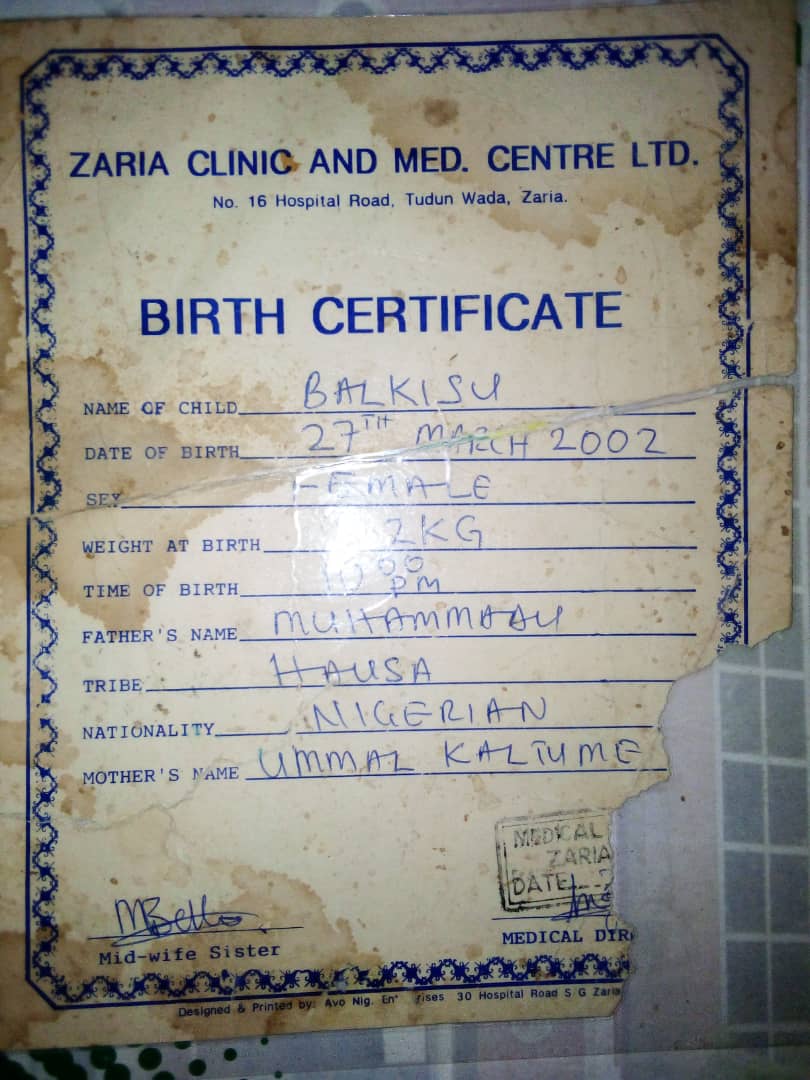 ZARIA CLINIC AND MED. CENTRE LTD.
No. 16 Hospital Road, Tudun Wada, Zaria.
BIRTH CERTIFICATE
NAME OF CHILD BALKISU
DATE OF BIRTH 27TH MARCH 2002
SEX FEMALE
WEIGHT AT BIRTH 2KG
TIME OF BIRTH 10 00 PM
FATHER'S NAME MUHAMMADU
TRIBE HAUSA
NATIONALITY NIGERIAN
MOTHER'S NAME UMMAL KALTUME
MEDICAL
ZARIA
DATE
MBello
Mid-wife Sister
MEDICAL DIR
Designed & Printed by: Avo Nig. Ent rises 30 Hospital Road S G Zaria